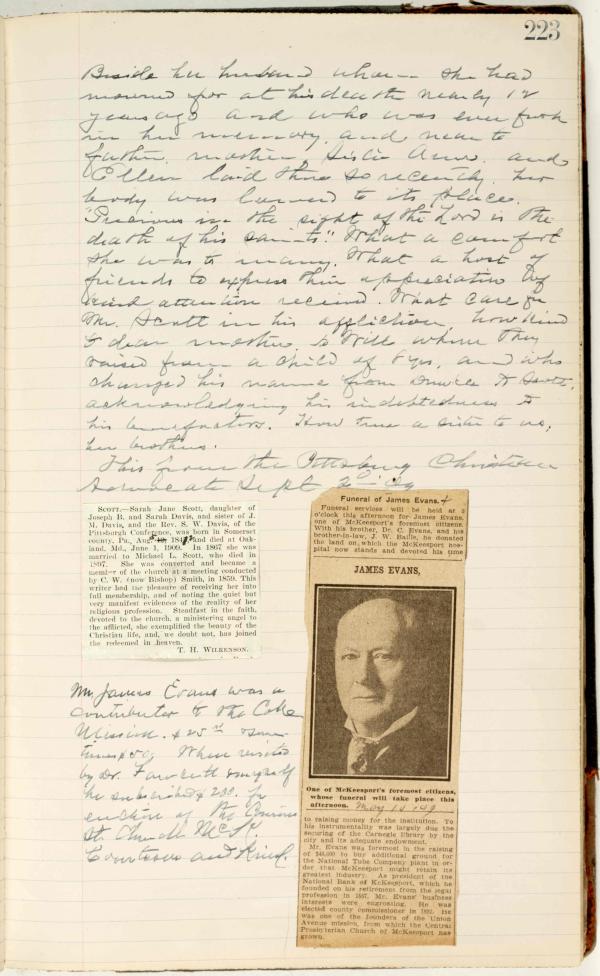 223
Beside her husband whom she had
mourned for at his death nearly 12
years ago and who was ever fresh
in her memory, and near to
father, mother, sister Ann, and
Ellen laid there so recently, her
body was lowered to its place.
"Precious in the sight of the Lord is the
death of his saints." What a comfort
she was to many. What a host of
friends to express their appreciation of
kind attention received. What care for
Mr. Scott in his affliction, how kind
to dear mother, to Will whom they
raised from a child of yrs, and who
changed his name from to Scott,
acknowledging his indebtedness to
his benefactors. How true a sister to us,
her brothers.
This from the Pittsburg Christian
Advocate Sept 2nd 09
SCOTT.—Sarah Jane Scott, daughter of
Joseph B. and Sarah Davis, and sister of J.
M. Davis, and the Rev. S. W. Davis, of the
Pittsburgh Conference, was born in Somerset
county, Pa., and died at Oak-
land, Md., June 1, 1909. In 1867 she was
married to Michael L. Scott, who died in
1897. She was converted and became a
member of the church at a meeting conducted
by C. W. (now Bishop) Smith, in 1859. This
writer had the pleasure of receiving her into
full membership, and of noting the quiet but
very manifest evidences of the reality of her
religious profession. Steadfast in the faith,
devoted to the church, a ministering angel to
the afflicted, she exemplified the beauty of the
Christian life, and, we doubt not, has joined
the redeemed in heaven.
T. H. WILKENSON.
Mr. James Evans was a
contributor to the Coke
Mission. $25
$50. When visited
by Dr. Fawcett & myself
he subscribed for
erection of the
St. Church McK.
Courteous and Kind.
Funeral of James Evans.
Funeral services will be held at 2
o'clock this afternoon for James Evans,
one of McKeesport's foremost citizens.
With his brother, Dr. C. Evans, and his
brother-in-law, J. W. Bailie, he donated
the land on, which the McKeesport hos-
pital now stands and devoted his time
JAMES EVANS,
One of McKeesport's foremost citizens,
whose funeral will take place this
afternoon. May
to raising money for the institution. To
his instrumentality was largely due the
securing of the Carnegie library by the
city and its adequate endowment.
Mr. Evans was foremost in the raising
of $40,000 to buy additional ground for
the National Tube Company plant in or-
der that McKeesport might retain its
greatest industry. As president of the
National Bank of McKeesport, which he
founded on his retirement from the legal
profession in 1887, Mr. Evans' business
interests were engrossing. He was
elected county commissioner in 1892. He
was one of the founders of the Union
Avenue mission, from which the Central
Presbyterian Church of McKeesport has
grown.